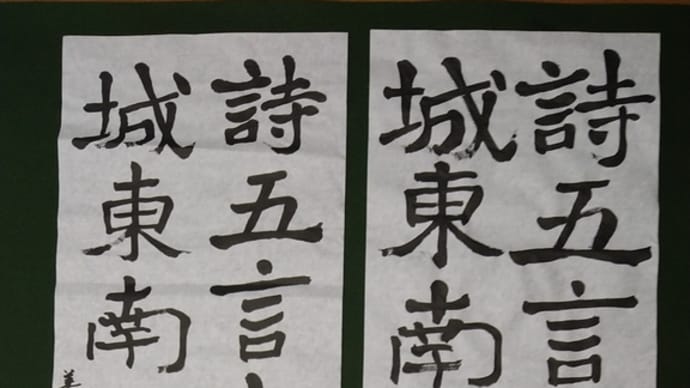 詩五言
城東南
詩五言
城東南